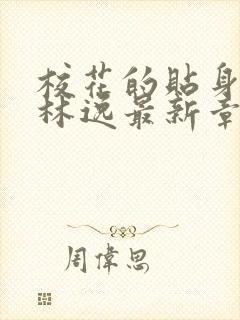 校花的貼身
林逸最新章
周偉思